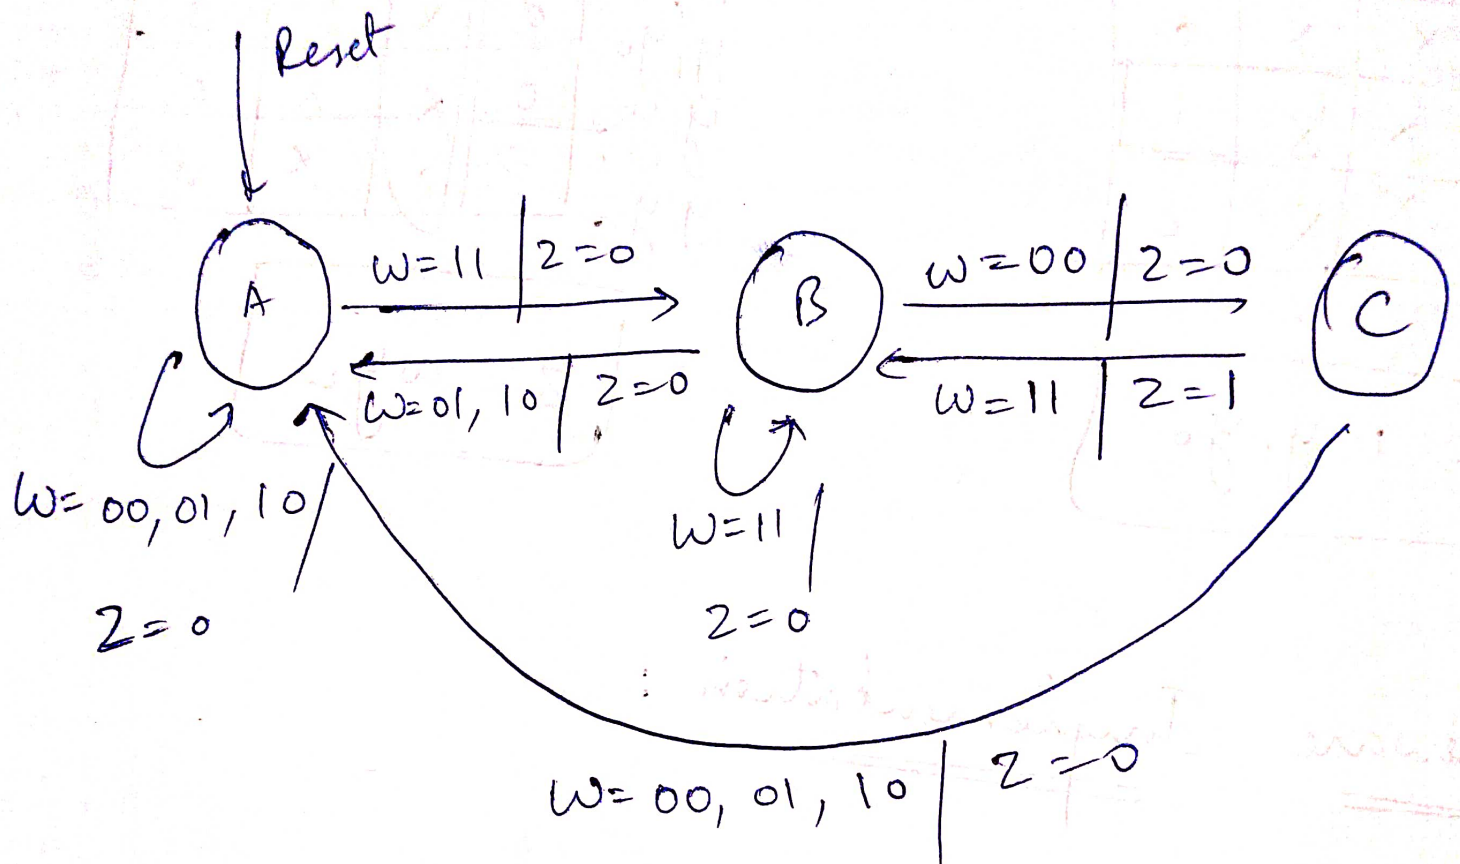 Reset
A
W=11 | Z=0
B
W=00 | Z=0
C
W=01, 10 | Z=0
W=11 | Z=1
W=00, 01, 10 /
Z=0
W=11 /
Z=0
W=00, 01, 10 | Z=0